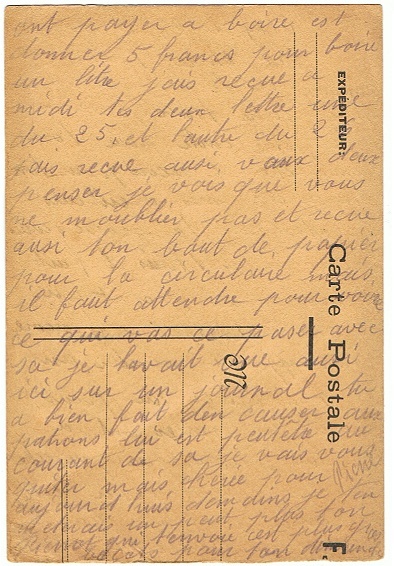 ont payer a boire est
donner 5 francs pour boire
un litre jais recue a
midi tes deux lettre une
du 25. et l'autre du 26
jais recue ausi vaux deux
penser je vois que vous
ne moublier pas et recue
ausi ton bout de papier
pour la circulaire mais
il faut attendre pour voir
ce qui vas ce paser avec
sa je lavait vue ausi
ici sur un journal tu
a bien fait den causer aux
patrons lui est peutetre au
courant de sa je vais vous
quiter mais cherie pour
aujourd huis demain je ten
metrais un peut plus ton
que tenvoie
pour ton
René
EXPÉDITEUR:
Carte Postale
M
F